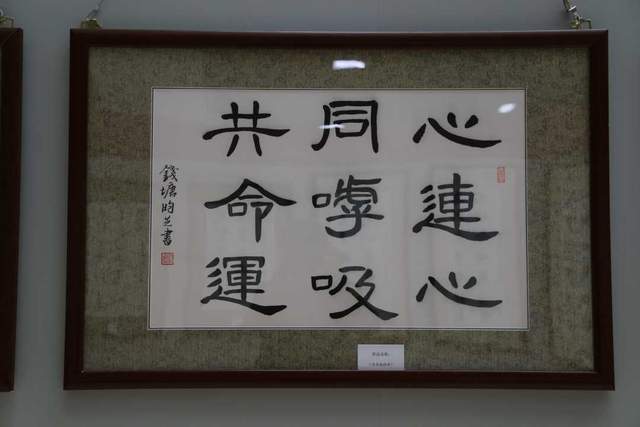 心連心
同嘑吸
共命運
錢塘昀芝書